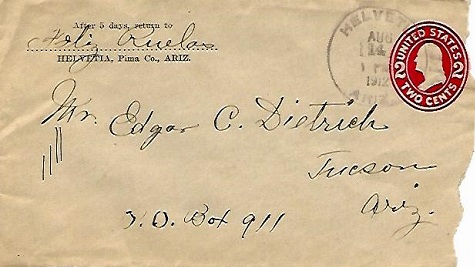 After 5 days, return to
Feliz Ruelas
HELVETIA, Pima Co., ARIZ.
HELVETI
AUG
14
1912
UNITED STATES
2 2
TWO CENTS
Mr. Edgar C. Dietrich
Tucson
Ariz.
P.O. Box 911